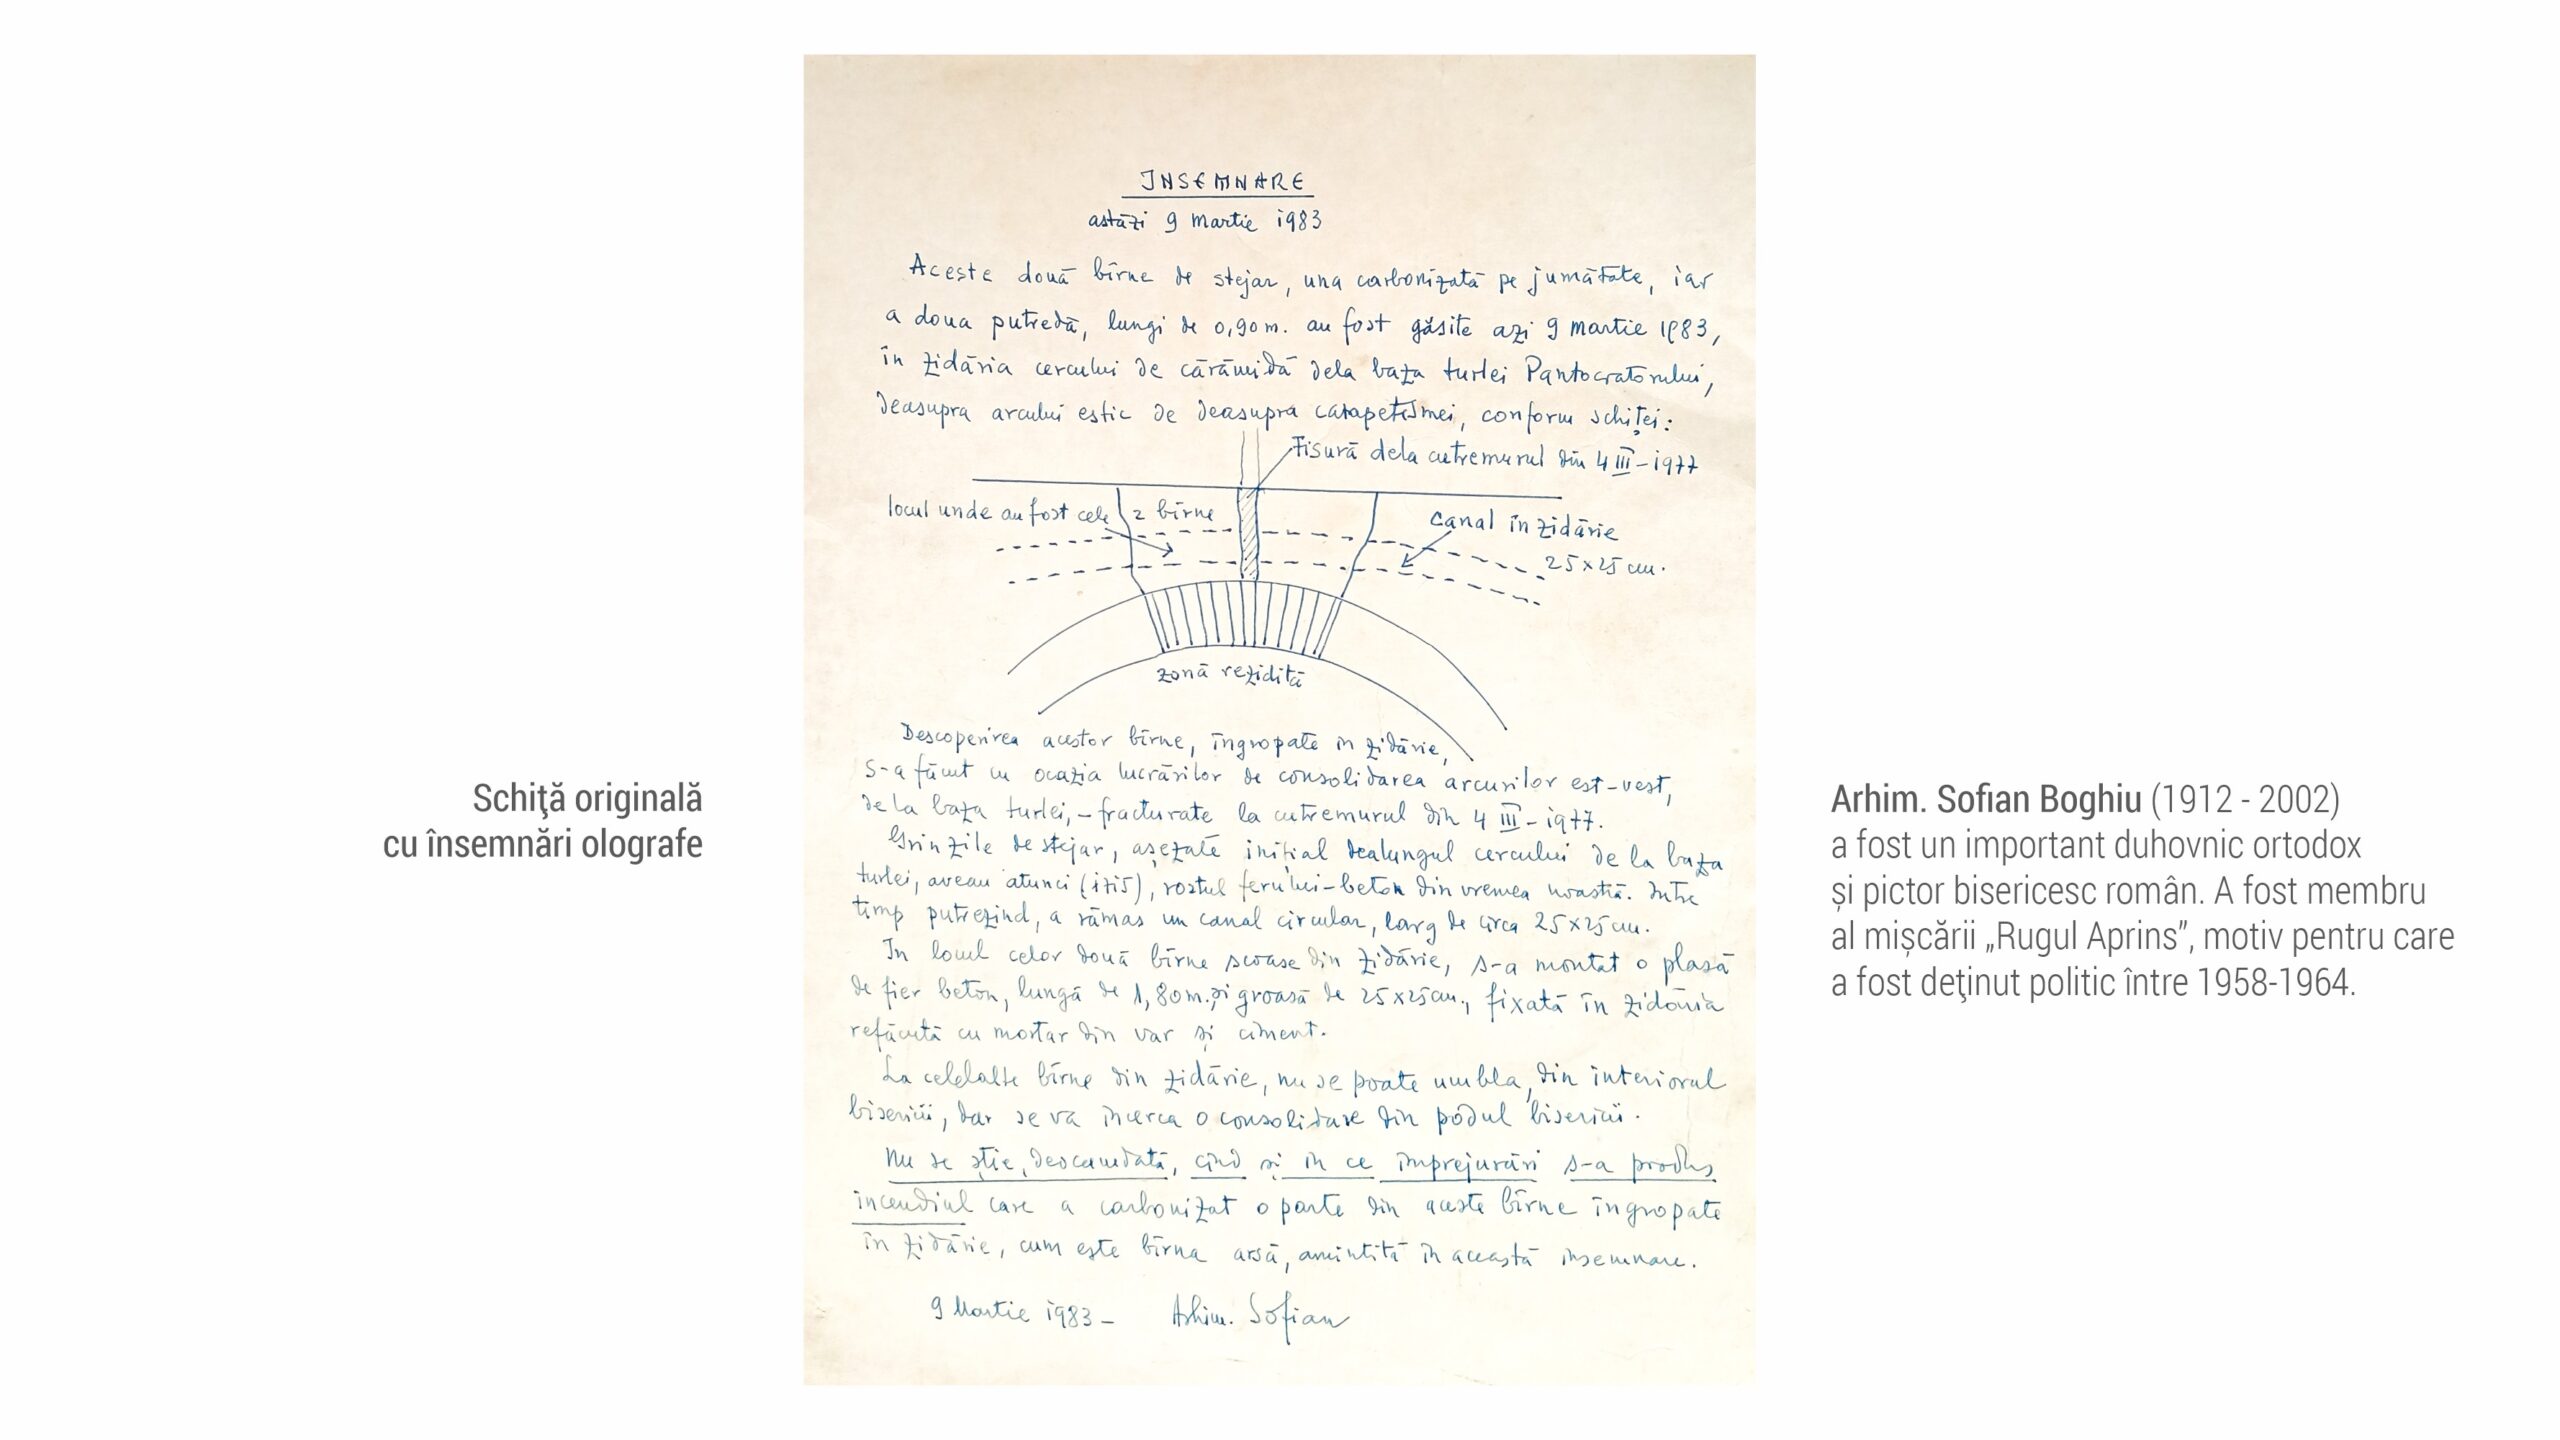 Schiţă originală
cu însemnări olografe
INSEMNARE
astăzi 9 Martie 1983
Aceste două bîrne de stejar, una carbonizată pe jumătate, iar
a doua putredă, lungi de 0,90 m. au fost găsite azi 9 Martie 1983,
în zidăria cercului de cărămidă dela baza turlei Pantocratorului,
deasupra arcului estic de deasupra catapetismei, conform schiţei:
Fisură dela cutremurul din 4 III - 1977
locul unde au fost cele 2 bîrne
canal în zidărie
25x25 cm.
zonă rezidită
Descoperirea acestor bîrne, îngropate în zidărie,
s-a făcut cu ocazia lucrărilor de consolidarea arcurilor est-vest,
dela baza turlei, - fracturate la cutremurul din 4 III - 1977.
Grinzile de stejar, aşezate iniţial dealungul cercului de la baza
turlei, aveau atunci (1715), rostul ferului-beton din vremea noastră. Intre
timp putrezind, a rămas un canal circular, larg de circa 25x25 cm.
In locul celor două bîrne scoase din zidărie, s-a montat o plasă
de fier beton, lungă de 1,80 m. şi groasă de 25x25 cm., fixată în zidăria
refăcută cu mortar din var şi ciment.
La celelalte bîrne din zidărie, nu se poate umbla, din interiorul
bisericii, dar se va încerca o consolidare din podul bisericii.
Nu se ştie, deocamdată, cînd şi în ce împrejurări s-a produs
incendiul care a carbonizat o parte din aceste bîrne îngropate
în zidărie, cum este bîrna arsă, amintită în această însemnare.
9 Martie 1983 - Arhim. Sofian
Arhim. Sofian Boghiu (1912 - 2002)
a fost un important duhovnic ortodox
și pictor bisericesc român. A fost membru
al mișcării „Rugul Aprins”, motiv pentru care
a fost deţinut politic între 1958-1964.